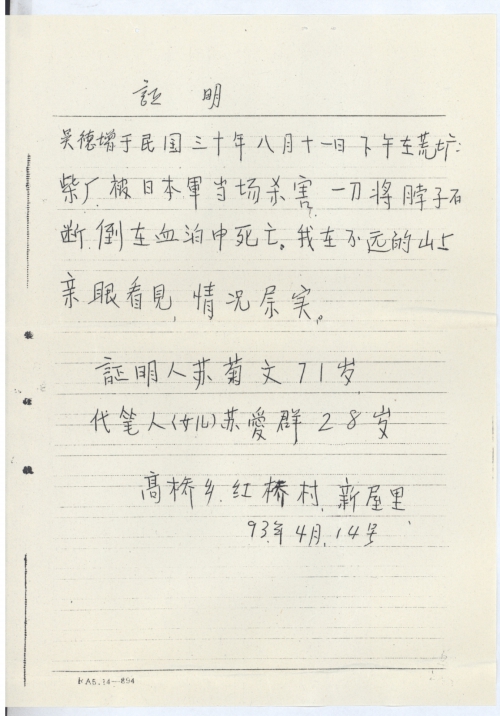 証 明
吴德增于民国三十年八月十一日下午在荒圹:
柴厂被日本軍当场杀害,一刀将脖子砍
断,倒在血泊中死亡。我在不远的山上
亲眼看見,情况属实。
証明人苏菊文71岁
代笔人(女儿)苏愛群28岁
高桥乡.红橋村.新屋里
93年4月14号